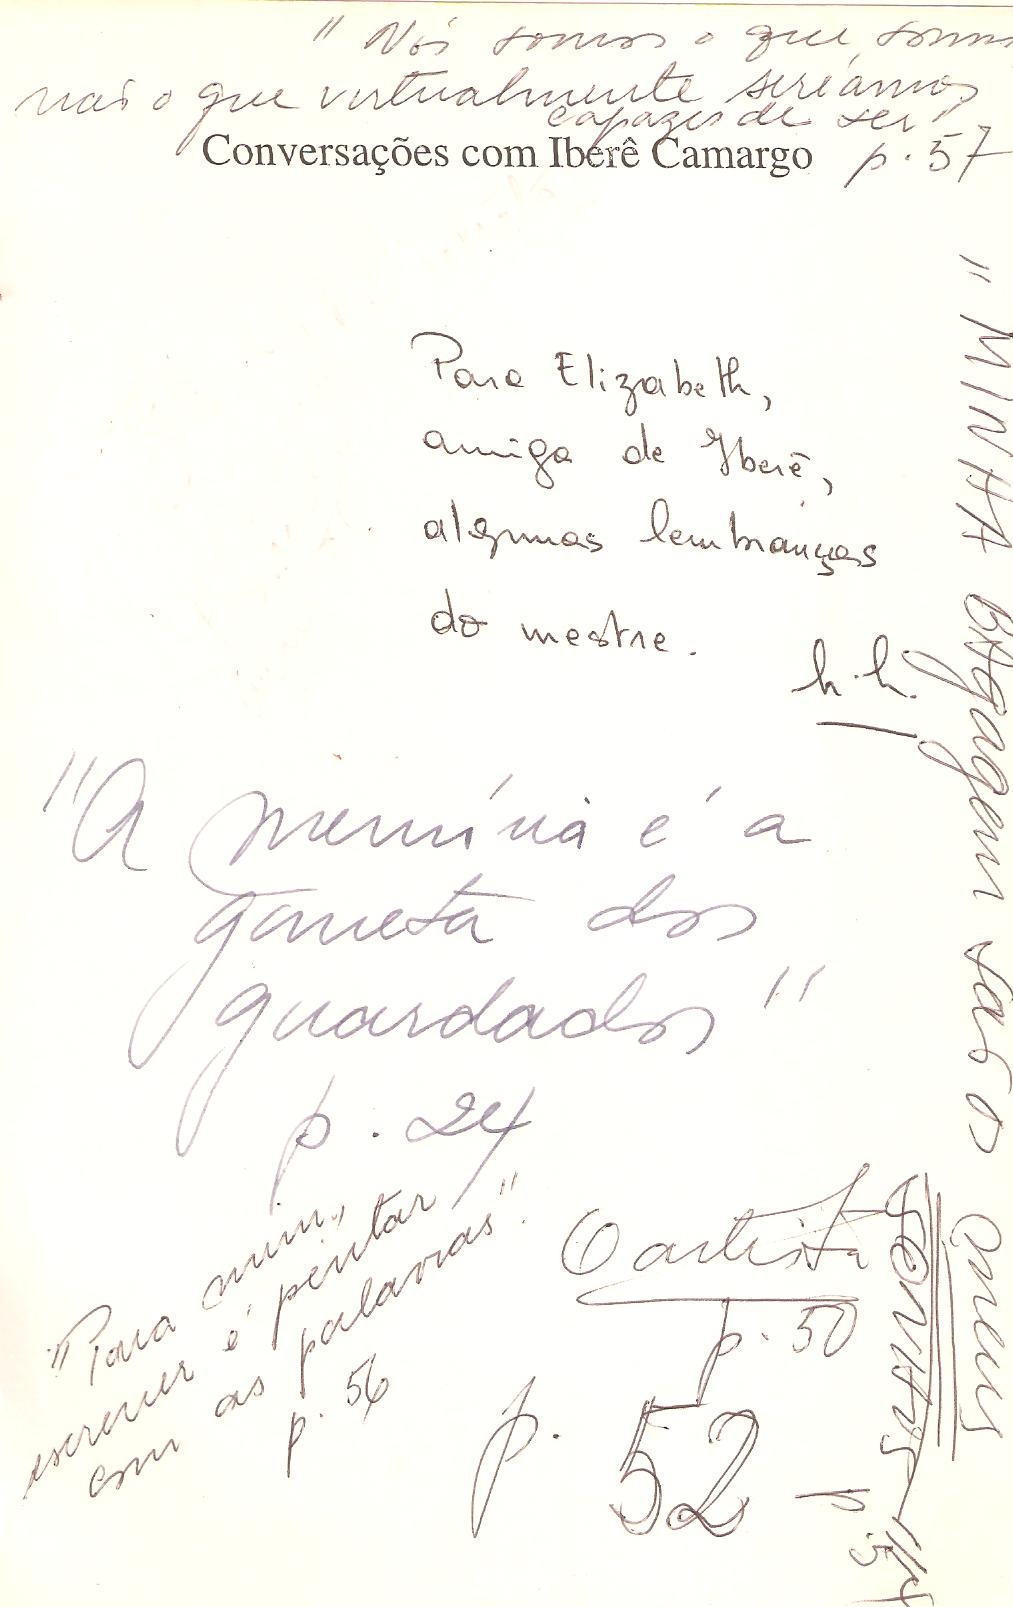 "Nós somos o que somos
não o que virtualmente seríamos
capazes de ser"
p. 57
Conversações com Iberê Camargo
Para Elizabeth,
amiga de Iberê,
algumas lembranças
do mestre.
"A memória é a
gaveta dos
guardados"
p. 24
"Para mim,
escrever é pintar
com as palavras".
p. 56
O artista
p. 50
p. 52
"MINHA BAgagem são os meus
SONHOS"